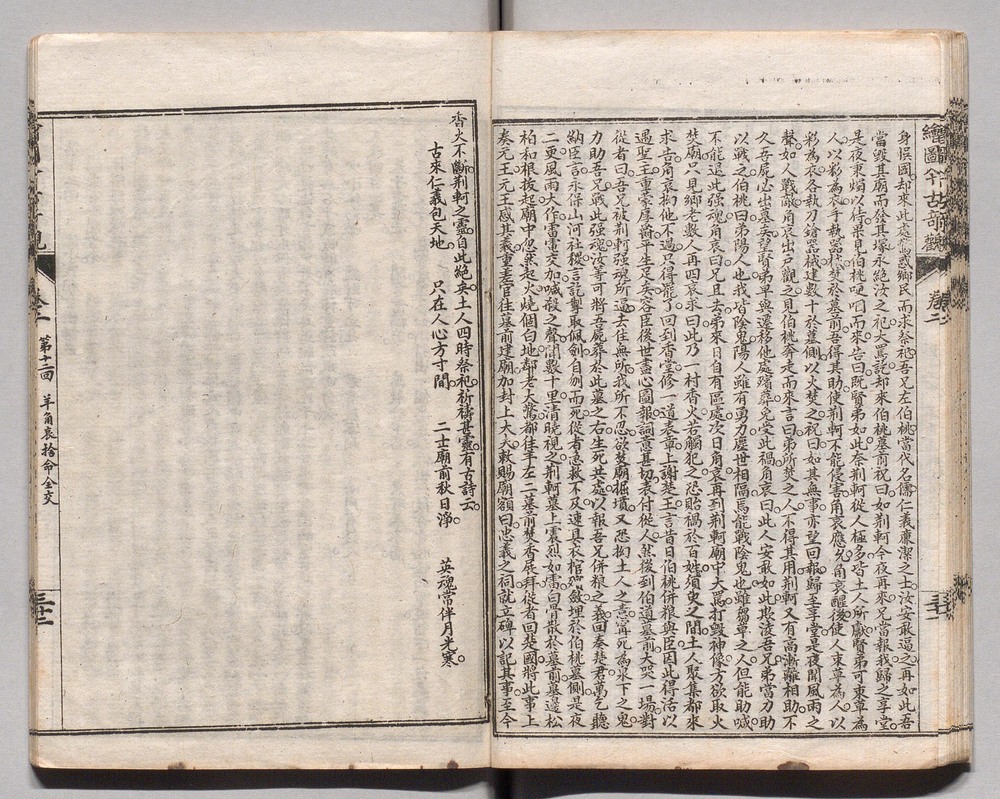 繪圖今古奇觀 卷二
身誤國却來此處惑鄉民而求祭祀吾兄左伯桃當代名儒仁義廉潔之士汝安敢逼之再如此吾
當毀其廟而發其塚永絕汝之祀大罵訖却來伯桃墓前祝曰如荆軻今夜再來兄當報我歸之享堂
是夜秉燭以待果見伯桃哽咽而來告曰旣賢弟如此奈荆軻從人極多皆土人所獻賢弟可束草為
人以彩為衣手執器械焚於墓前吾得其助使荆軻不能侵害角哀應允角哀醒後使人束草為人以
彩為衣各執刀鎗器械建數十於墓側以火焚之祝曰如其無事亦望回報歸至享堂是夜聞風雨之
聲如人戰敵角哀出戶觀之見伯桃奔走而來言曰弟所焚之人不得其用荆軻又有高漸離相助不
久吾屍必出墓矣望賢弟早與遷移他處殯葬免受此禍角哀曰此人安敢如此欺凌吾兄弟當力助
以戰之伯桃曰弟陽人也我皆陰鬼陽人雖有勇力塵世相隔焉能戰陰鬼也雖芻草之人但能助喊
不能退此强魂角哀曰兄且去弟來日自有區處次日角哀再到荆軻廟中大罵打毀神像方欲取火
焚廟只見鄉老數人再四哀求曰此乃一村香火若觸犯之恐貽禍於百姓須臾之間土人聚集都來
求告角哀拗他不過只得罷了回到香堂修一道表章上謝楚王言昔日伯桃併糧與臣因此得活以
遇聖王重蒙厚爵平生足矣容臣後世盡心圖報詞意甚切表付從人然後到伯道墓前大哭一場對
從者曰吾兄被荆軻强魂所逼去住無所我所不忍欲焚廟掘墳又恐拘土人之意寧死為泉下之鬼
力助吾兄戰此强魂汝等可將吾屍葬於此墓之右生死共處以報吾兄併糧之義回奏楚君萬乞聽
納臣言永保山河社稷言訖掣取佩劍自刎而死從者急救不及速具衣棺殮埋於伯桃墓側是夜
二更風雨大作雷電交加喊殺之聲聞數十里清曉視之荆軻墓上震烈如雷白骨散於墓前墓邊松
柏和根拔起廟中忽然起火燒個白地鄰老大驚都往羊左二墓前焚香展拜從者回楚國將此事上
奏元王元王感其義重差官往墓前建廟加封上大夫敕賜廟額曰忠義之祠就立碑以記其事至今
三十一
香火不斷荆軻之靈自此絕矣土人四時祭祀祈禱甚靈有古詩云
古來仁義包天地 只在人心方寸間 二士廟前秋日淨 英魂常伴月光寒
卷二
第十二回 羊角哀捨命全交
三十一